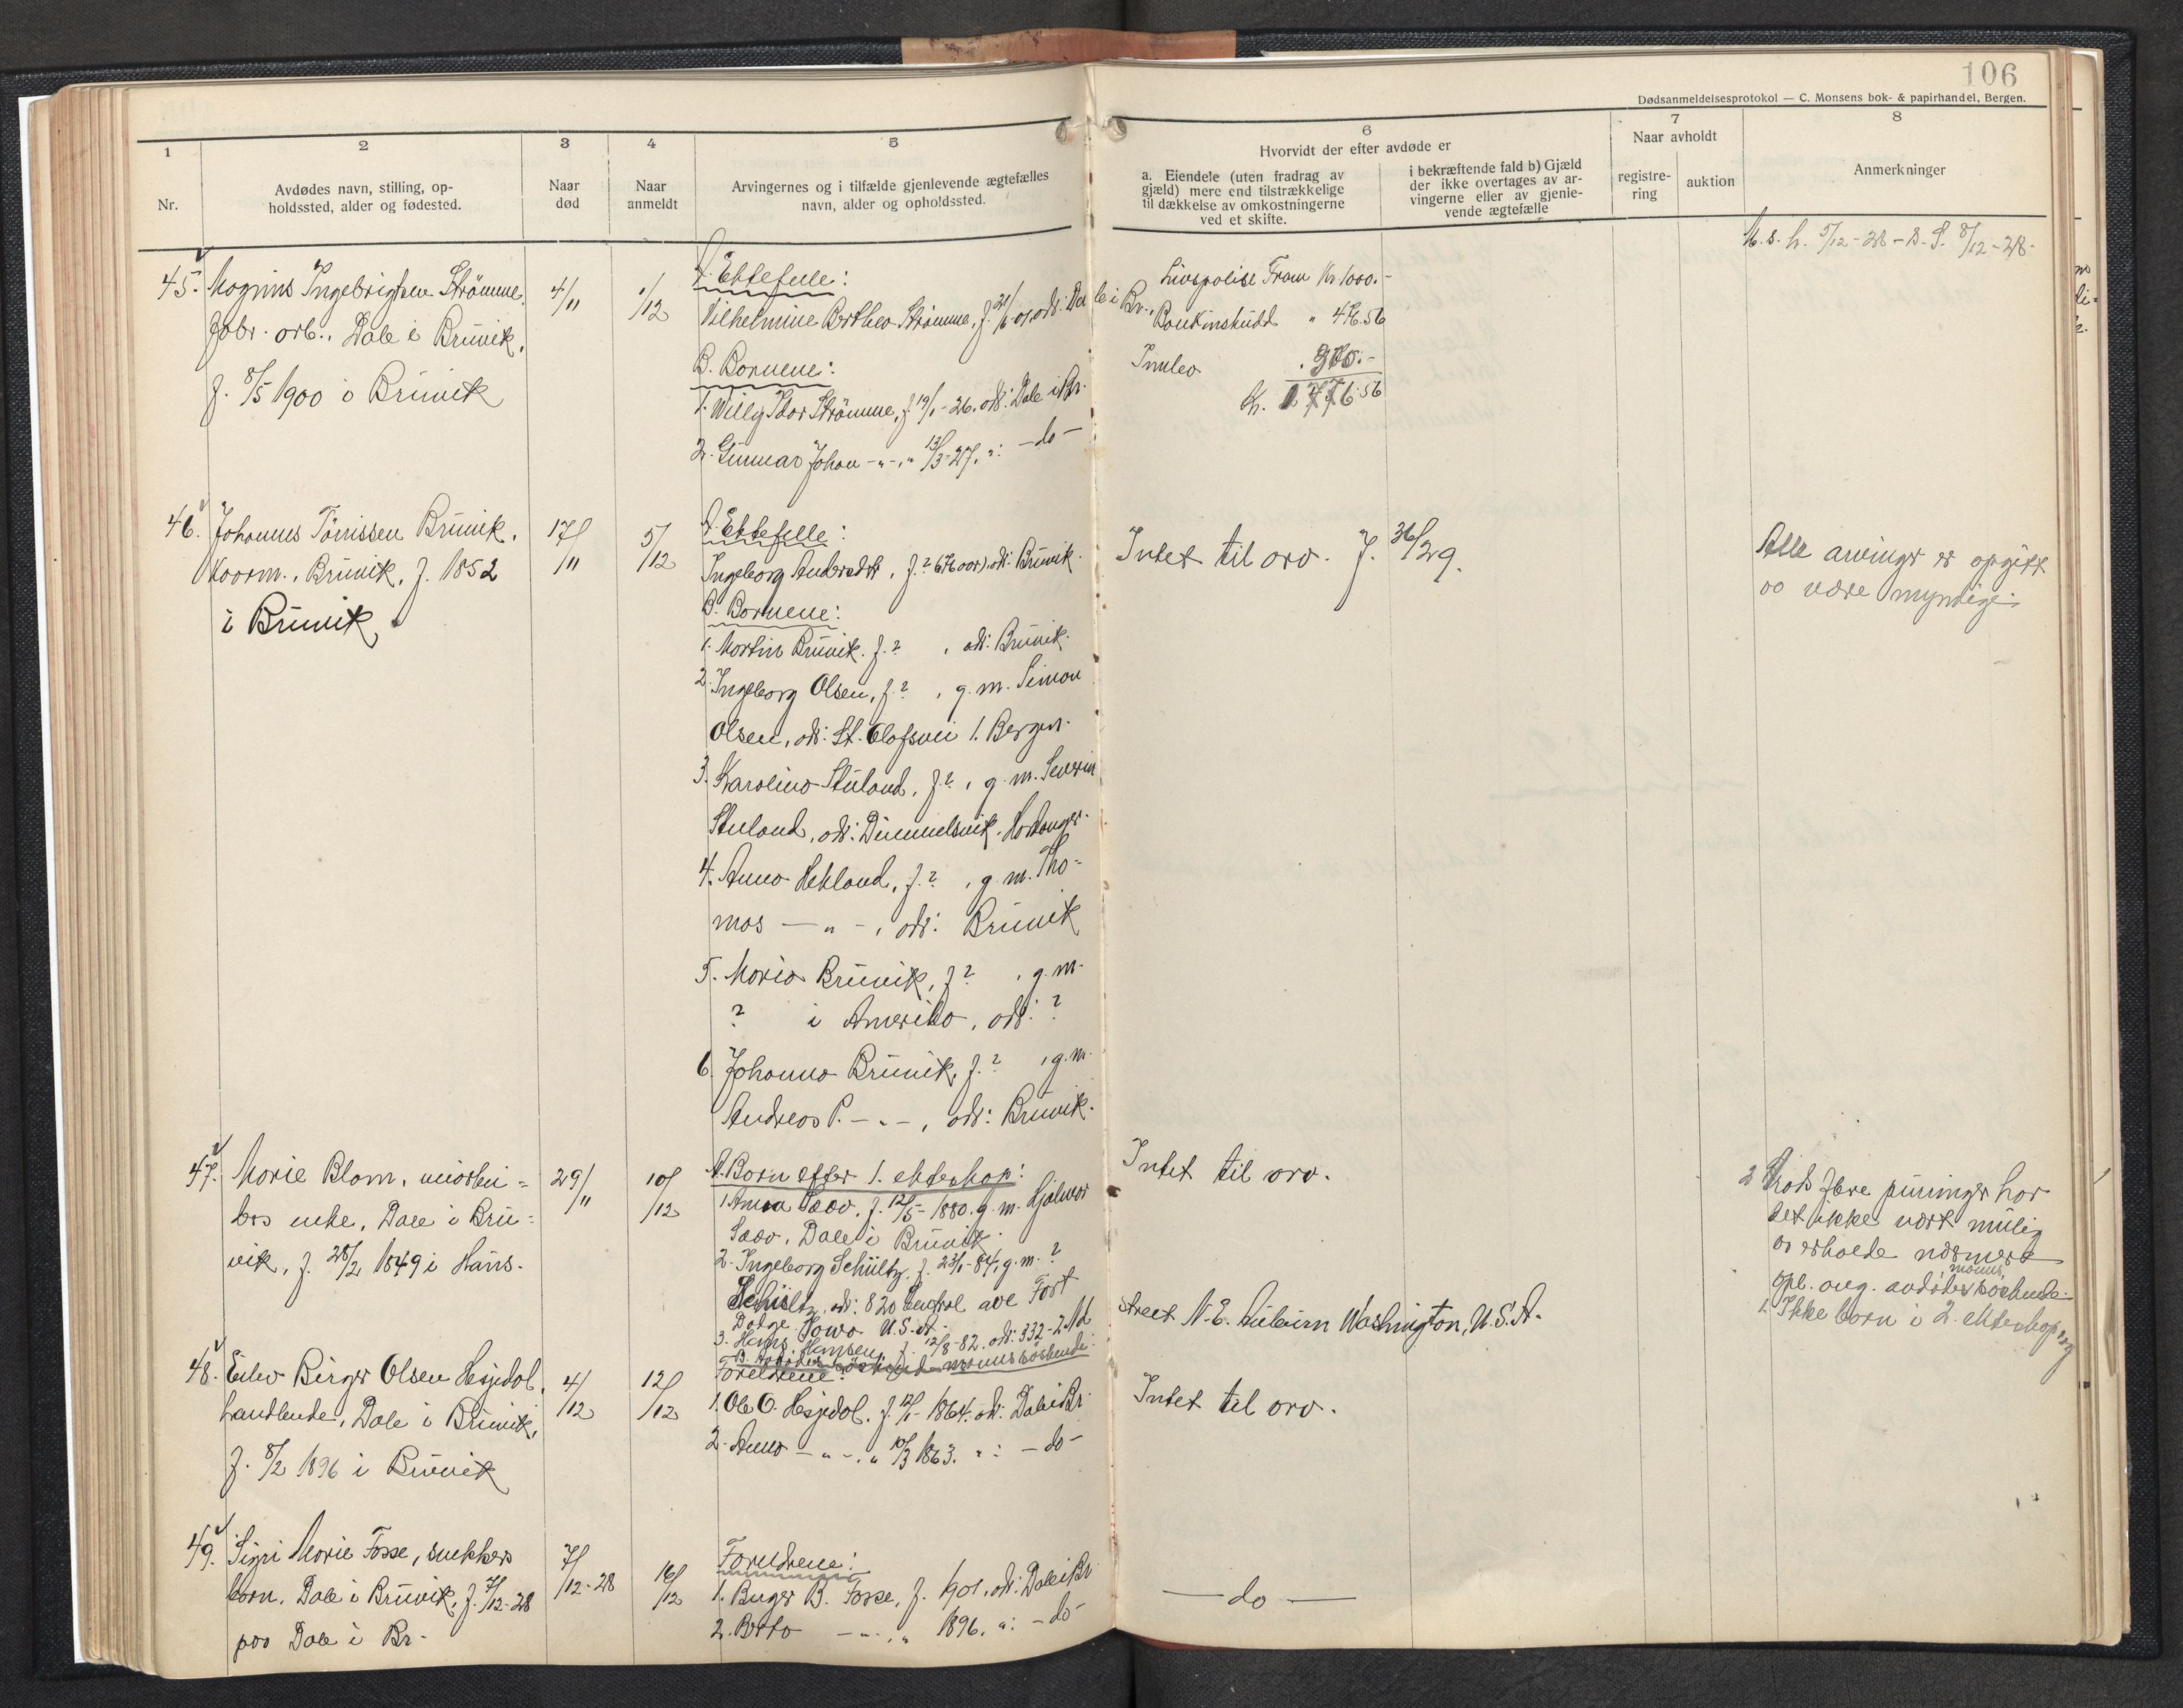 106
Dødsanmeldelsesprotokol — C. Monsens bok- & papirhandel, Bergen.
1
Nr.
2
Avdødes navn, stilling, op-
holdssted, alder og fødested.
3
Naar
død
4
Naar
anmeldt
5
Arvingernes og i tilfælde gjenlevende ægtefælles
navn, alder og opholdssted.
6
Hvorvidt der efter avdøde er
a. Eiendele (uten fradrag av
gjæld) mere end tilstrækkelige
til dækkelse av omkostningerne
ved et skifte.
i bekræftende fald b) Gjæld
der ikke overtages av ar-
vingerne eller av gjenle-
vende ægtefælle
7
Naar avholdt
registre-
ring
auktion
8
Anmerkninger
45. Magnus Ingebrigtsen Strømme,
fabr. arb., Dale i Bruvik,
f. 8/5 1900 i Bruvik
4/11
1/12
A. Ektefelle:
Vilhelmine Berthea Strømme, f. 21/6-01, ads: Dale i Br.,
B. Barnene:
1. Willy Thor Strømme, f. 19/1-26, ads: Dale i Br.
2. Gunnar Johan -"-, " 13/3-27, ": -do-
Livspolise Fram Kr 1000.-
Bankinskudd " 476.56
Innbo
Kr. 1776.56
5/12-28 - 8/12-28-
46. Johannes Tønnissen Bruvik,
kaarm., Bruvik, f. 1852
i Bruvik
17/11
5/12
A. Ektefelle:
Ingeborg Andersdtr, f. ? (76 aar), ads: Bruvik.
B. Barnene:
1. Martin Bruvik, f. ? , ads: Bruvik.
2. Ingeborg Olsen, f. ? , g. m. Simon
Olsen, ads: St. Olafsvei 1. Bergen.
3. Karolina Stuland, f. ? , g. m. Severin
Stuland, ads: Dimmelsvik, Hardanger.
4. Anna Hekland, f. ? , g. m. Tho-
mas -"- , ads: Bruvik
5. Maria Bruvik, f. ? , g. m.
? i Amerika, ads: ?
6. Johanna Bruvik, f. ? , g. m.
Andreas P. -"-, ads: Bruvik.
Intet til arv. J. 36/29.
Alle arvinger er opgitt
aa være myndige.
47. Marie Blom,
enke, Dale i Bru-
vik, f. 28/2 1849 i Haus.
29/11
10/12
A. Barn efter 1. ekteskap:
1. Anna Saao, f. 12/5-1880, g. m. Hjalmar
Saao, Dale i Bruvik.
2. Ingeborg Schültz, f. 23/1-84, g. m. ?
Schültz, ads: 820 Central ave Fort
Dodge. Iowa U.S.A.
3. Hans Hansen, f. 12/8-82, ads: 332-2 Nd
street N.E. Auburn Washington, U.S.A.
B. Avdødes søskend mannss søskende:
Intet til arv.
2 Trods flere puringer har
det ikke vært mulig
aa erholde nærmere
opl. ang. avdødes manns søskende.
1. Ikke barn i 2. ekteskap
48. Eilev Birger Olsen Hesjedal,
handlende, Dale i Bruvik,
f. 8/2 1896 i Bruvik
4/12
12/12
Foreldrene:
1. Ole O. Hesjedal, f. 12/1-1864, ads: Dale i Br.
2. Anna -"-, " 10/3 1863, ": -do-
Intet til arv.
49. Sigri Marie Fosse, snekkers
barn, Dale i Bruvik, f. 7/12-28
paa Dale i Br.
7/12-28
16/12
Foreldrene:
1. Birger B. Fosse, f. 1901, ads: Dale i Br.
2. Berta -"-, " 1896, ": -do-
-do-